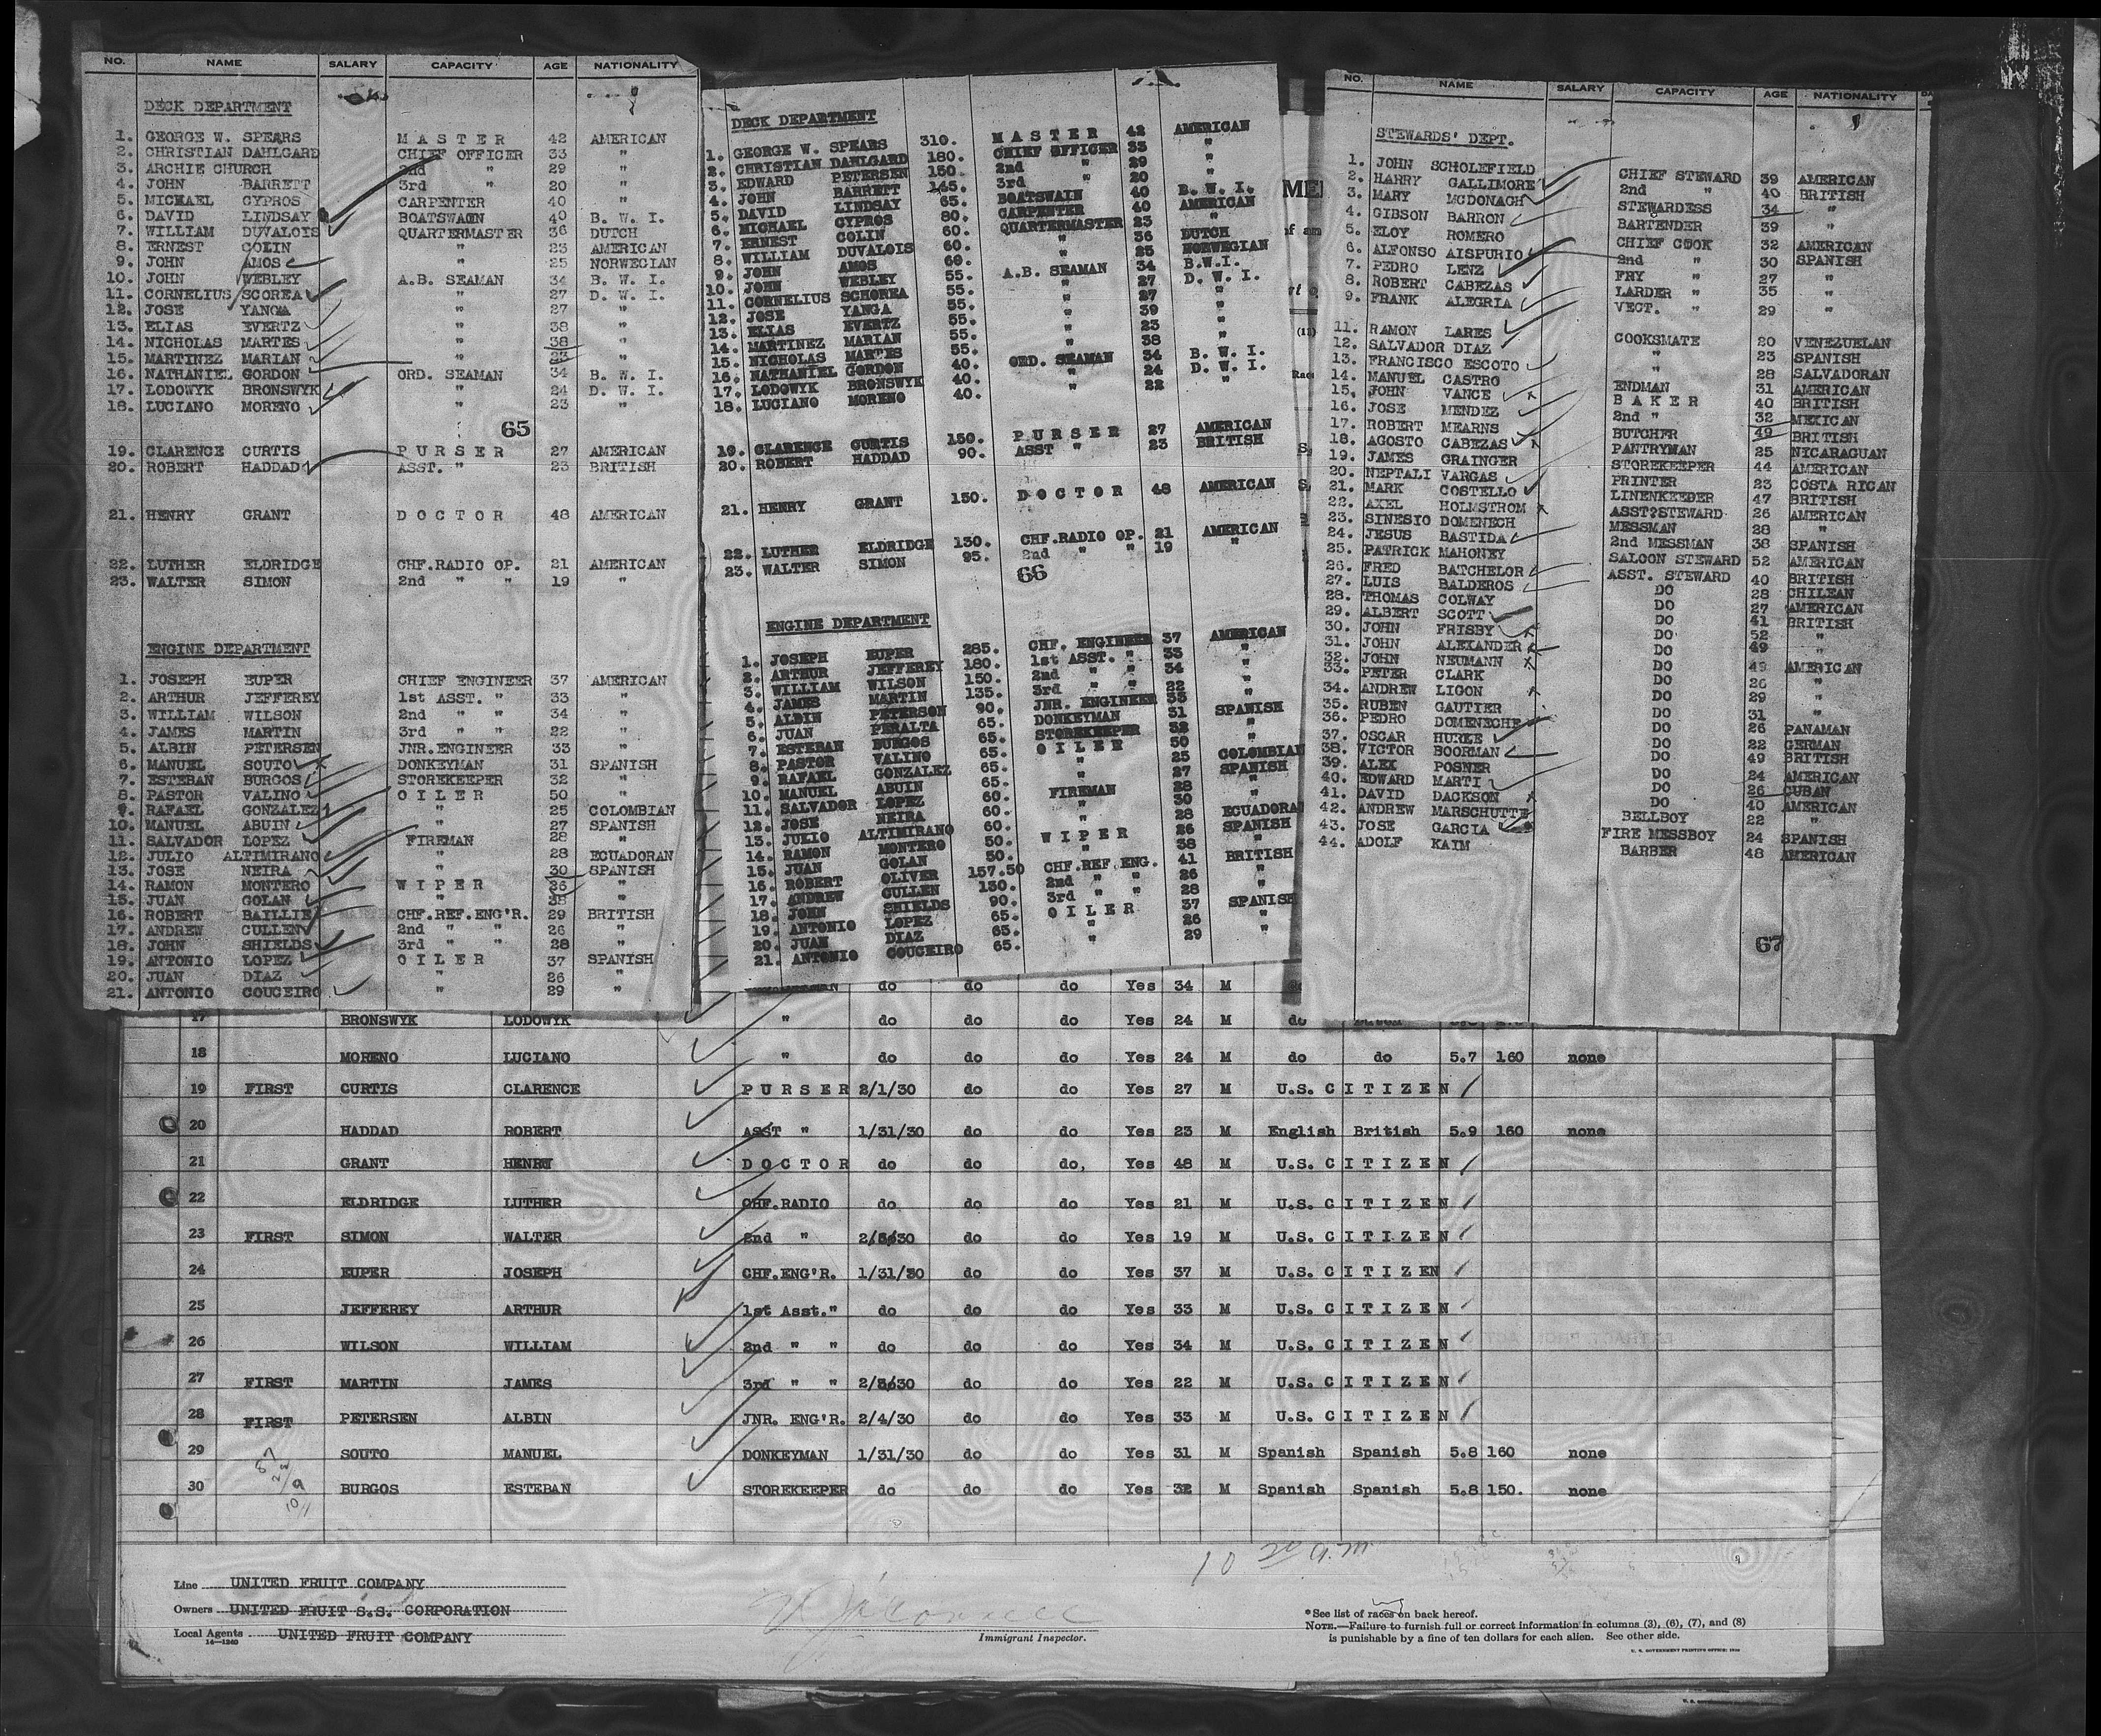 NO. NAME SALARY CAPACITY AGE NATIONALITY
DECK DEPARTMENT
1. GEORGE W. SPEARS MASTER 42 AMERICAN
2. CHRISTIAN DAHLGARD CHIEF OFFICER 33 "
3. ARCHIE CHURCH 2nd " 29 "
4. JOHN BARRETT 3rd " 20 "
5. MICHAEL CYPROS CARPENTER 40 "
6. DAVID LINDSAY BOATSWAIN 40 B. W. I.
7. WILLIAM DUVALOIS QUARTERMASTER 36 DUTCH
8. ERNEST COLIN " 23 AMERICAN
9. JOHN AMOS " 25 NORWEGIAN
10. JOHN WEBLEY A.B. SEAMAN 34 B. W. I.
11. CORNELIUS SCOREA " 27 D. W. I.
12. JOSE YANGA " 27 "
13. ELIAS EVERTZ " 38 "
14. NICHOLAS MARTES " 38 "
15. MARTINEZ MARIAN " 23 "
16. NATHANIEL GORDON ORD. SEAMAN 34 B. W. I.
17. LODOWYK BRONSWYK " 24 D. W. I.
18. LUCIANO MORENO " 23 "
65
19. CLARENCE CURTIS PURSER 27 AMERICAN
20. ROBERT HADDAD ASST. " 23 BRITISH
21. HENRY GRANT DOCTOR 48 AMERICAN
22. LUTHER ELDRIDGE CHF.RADIO OP. 21 AMERICAN
23. WALTER SIMON 2nd " " 19 "
ENGINE DEPARTMENT
1. JOSEPH EUPER CHIEF ENGINEER 37 AMERICAN
2. ARTHUR JEFFEREY 1st ASST. " 33 "
3. WILLIAM WILSON 2nd " " 34 "
4. JAMES MARTIN 3rd " " 22 "
5. ALBIN PETERSEN JNR.ENGINEER 33 "
6. MANUEL SOUTO DONKEYMAN 31 SPANISH
7. ESTEBAN BURGOS STOREKEEPER 32 "
8. PASTOR VALINO OILER 50 "
9. RAFAEL GONZALEZ " 25 COLOMBIAN
10. MANUEL ABUIN " 27 SPANISH
11. SALVADOR LOPEZ FIREMAN 28 "
12. JULIO ALTIMIRANO " 28 ECUADORAN
13. JOSE NEIRA " 30 SPANISH
14. RAMON MONTERO WIPER 26 "
15. JUAN GOLAN " 38 "
16. ROBERT BAILLIE CHF.REF.ENG'R. 29 BRITISH
17. ANDREW CULLEN 2nd " " 26 "
18. JOHN SHIELDS 3rd " " 28 "
19. ANTONIO LOPEZ OILER 37 SPANISH
20. JUAN DIAZ " 26 "
21. ANTONIO COUCEIRO " 29 "
DECK DEPARTMENT
1. GEORGE W. SPEARS 310. MASTER 42 AMERICAN
2. CHRISTIAN DAHLGARD 180. CHIEF OFFICER 33 "
3. EDWARD PETERSEN 150. 2nd " 29 "
4. JOHN BARRETT 145. 3rd " 20 "
5. DAVID LINDSAY 65. BOATSWAIN 40 B. W. I.
6. MICHAEL CYPROS 80. CARPENTER 40 AMERICAN
7. ERNEST COLIN 60. QUARTERMASTER 23 "
8. WILLIAM DUVALOIS 60. " 36 DUTCH
9. JOHN AMOS 60. " 25 NORWEGIAN
10. JOHN WEBLEY 55. A.B. SEAMAN 34 B.W.I.
11. CORNELIUS SCHOREA 55. " 27 D. W. I.
12. JOSE YANGA 55. " 27 "
13. ELIAS EVERTZ 55. " 39 "
14. MARTINEZ MARIAN 55. " 23 "
15. NICHOLAS MARTES 55. " 38 "
16. NATHANIEL GORDON 40. ORD. SEAMAN 34 B. W. I.
17. LODOWYK BRONSWYK 40. " 24 D. W. I.
18. LUCIANO MORENO 40. " 22 "
19. CLARENCE CURTIS 150. PURSER 27 AMERICAN
20. ROBERT HADDAD 90. ASST " 23 BRITISH
21. HENRY GRANT 150. DOCTOR 48 AMERICAN
22. LUTHER ELDRIDGE 130. CHF.RADIO OP. 21 AMERICAN
23. WALTER SIMON 95. 2nd " " 19 "
66
ENGINE DEPARTMENT
1. JOSEPH EUPER 285. CHF. ENGINEER 37 AMERICAN
2. ARTHUR JEFFEREY 180. 1st ASST. " 33 "
3. WILLIAM WILSON 150. 2nd " " 34 "
4. JAMES MARTIN 135. 3rd " " 22 "
5. ALBIN PETERSON 90. JNR. ENGINEER 33 "
6. JUAN PERALTA 65. DONKEYMAN 31 SPANISH
7. ESTEBAN BURGOS 65. STOREKEEPER 32 "
8. PASTOR VALINO 65. OILER 50 "
9. RAFAEL GONZALEZ 65. " 25 COLOMBIAN
10. MANUEL ABUIN 65. " 27 SPANISH
11. SALVADOR LOPEZ 60. FIREMAN 28 "
12. JOSE NEIRA 60. " 30 "
13. JULIO ALTIMIRANO 60. " 28 ECUADORA
14. RAMON MONTERO 50. WIPER 26 SPANISH
15. JUAN GOLAN 50. " 38 "
16. ROBERT OLIVER 157.50 CHF.REF.ENG. 41 BRITISH
17. ANDREW CULLEN 130. 2nd " " 26 "
18. JOHN SHIELDS 90. 3rd " " 28 "
19. ANTONIO LOPEZ 65. OILER 37 SPANISH
20. JUAN DIAZ 65. " 26 "
21. ANTONIO COUCEIRO 65. " 29 "
NO. NAME SALARY CAPACITY AGE NATIONALITY
STEWARDS' DEPT.
1. JOHN SCHOLEFIELD CHIEF STEWARD 39 AMERICAN
2. HARRY GALLIMORE 2nd " 40 BRITISH
3. MARY MCDONAGH STEWARDESS 34 "
4. GIBSON BARRON BARTENDER 39 "
5. ELOY ROMERO CHIEF COOK 32 AMERICAN
6. ALFONSO AISPURIO 2nd " 30 SPANISH
7. PEDRO LENZ FRY " 27 "
8. ROBERT CABEZAS LARDER " 35 "
9. FRANK ALEGRIA VECT. " 29 "
11. RAMON LARES COOKSMATE 20 VENEZUELAN
12. SALVADOR DIAZ " 23 SPANISH
13. FRANCISCO ESCOTO " 28 SALVADORAN
14. MANUEL CASTRO ENDMAN 31 AMERICAN
15. JOHN VANCE BAKER 40 BRITISH
16. JOSE MENDEZ 2nd " 32 MEXICAN
17. ROBERT MEARNS BUTCHER 49 BRITISH
18. AGOSTO CABEZAS PANTRYMAN 25 NICARAGUAN
19. JAMES GRAINGER STOREKEEPER 44 AMERICAN
20. NEPTALI VARGAS PRINTER 23 COSTA RICAN
21. MARK COSTELLO LINENKEEPER 47 BRITISH
22. AXEL HOLMSTROM ASST?STEWARD 26 AMERICAN
23. SINESIO DOMENECH MESSMAN 28 "
24. JESUS BASTIDA 2nd MESSMAN 38 SPANISH
25. PATRICK MAHONEY SALOON STEWARD 52 AMERICAN
26. FRED BATCHELOR ASST. STEWARD 40 BRITISH
27. LUIS BALDEROS DO 28 CHILEAN
28. THOMAS COLWAY DO 27 AMERICAN
29. ALBERT SCOTT DO 41 BRITISH
30. JOHN FRISBY DO 52 "
31. JOHN ALEXANDER DO 49 "
32. JOHN NEUMANN DO 49 AMERICAN
33. PETER CLARK DO 26 "
34. ANDREW LIGON DO 29 "
35. RUBEN GAUTIER DO 31 "
36. PEDRO DOMENECHE DO 26 PANAMAN
37. OSCAR HURLE DO 22 GERMAN
38. VICTOR BOORMAN DO 49 BRITISH
39. ALEX POSNER DO 24 AMERICAN
40. EDWARD MARTI DO 26 CUBAN
41. DAVID DACKSON DO 40 AMERICAN
42. ANDREW MARSCHUTTE BELLBOY 22 "
43. JOSE GARCIA FIRE MESSBOY 24 SPANISH
44. ADOLF KAIM BARBER 48 AMERICAN
67
do do do Yes 34 M
17 BRONSWYK LODOWYK " do do do Yes 24 M do
18 MORENO LUCIANO " do do do Yes 24 M do do 5.7 160 none
19 FIRST CURTIS CLARENCE PURSER 2/1/30 do do Yes 27 M U.S. CITIZEN
20 HADDAD ROBERT ASST " 1/31/30 do do Yes 23 M English British 5.9 160 none
21 GRANT HENRY DOCTOR do do do, Yes 48 M U.S. CITIZEN
22 ELDRIDGE LUTHER CHF.RADIO do do do Yes 21 M U.S. CITIZEN
23 FIRST SIMON WALTER 2nd " do do Yes 19 M U.S. CITIZEN
24 EUPER JOSEPH CHF.ENG'R. 1/31/30 do do Yes 37 M U.S. CITIZEN
25 JEFFEREY ARTHUR 1st Asst." do do do Yes 33 M U.S. CITIZEN
26 WILSON WILLIAM 2nd " " do do do Yes 34 M U.S. CITIZEN
27 FIRST MARTIN JAMES 3rd " " do do Yes 22 M U.S. CITIZEN
28 FIRST PETERSEN ALBIN JNR. ENG'R. 2/4/30 do do Yes 33 M U.S. CITIZEN
29 SOUTO MANUEL DONKEYMAN 1/31/30 do do Yes 31 M Spanish Spanish 5.8 160 none
30 BURGOS ESTEBAN STOREKEEPER do do do Yes 32 M Spanish Spanish 5.8 150. none
10 20 a.m.
Line UNITED FRUIT COMPANY
Owners UNITED FRUIT S.S. CORPORATION
Local Agents UNITED FRUIT COMPANY
14-1240
Immigrant Inspector.
*See list of races on back hereof.
NOTE.—Failure to furnish full or correct information in columns (3), (6), (7), and (8)
is punishable by a fine of ten dollars for each alien. See other side.
U. S. GOVERNMENT PRINTING OFFICE